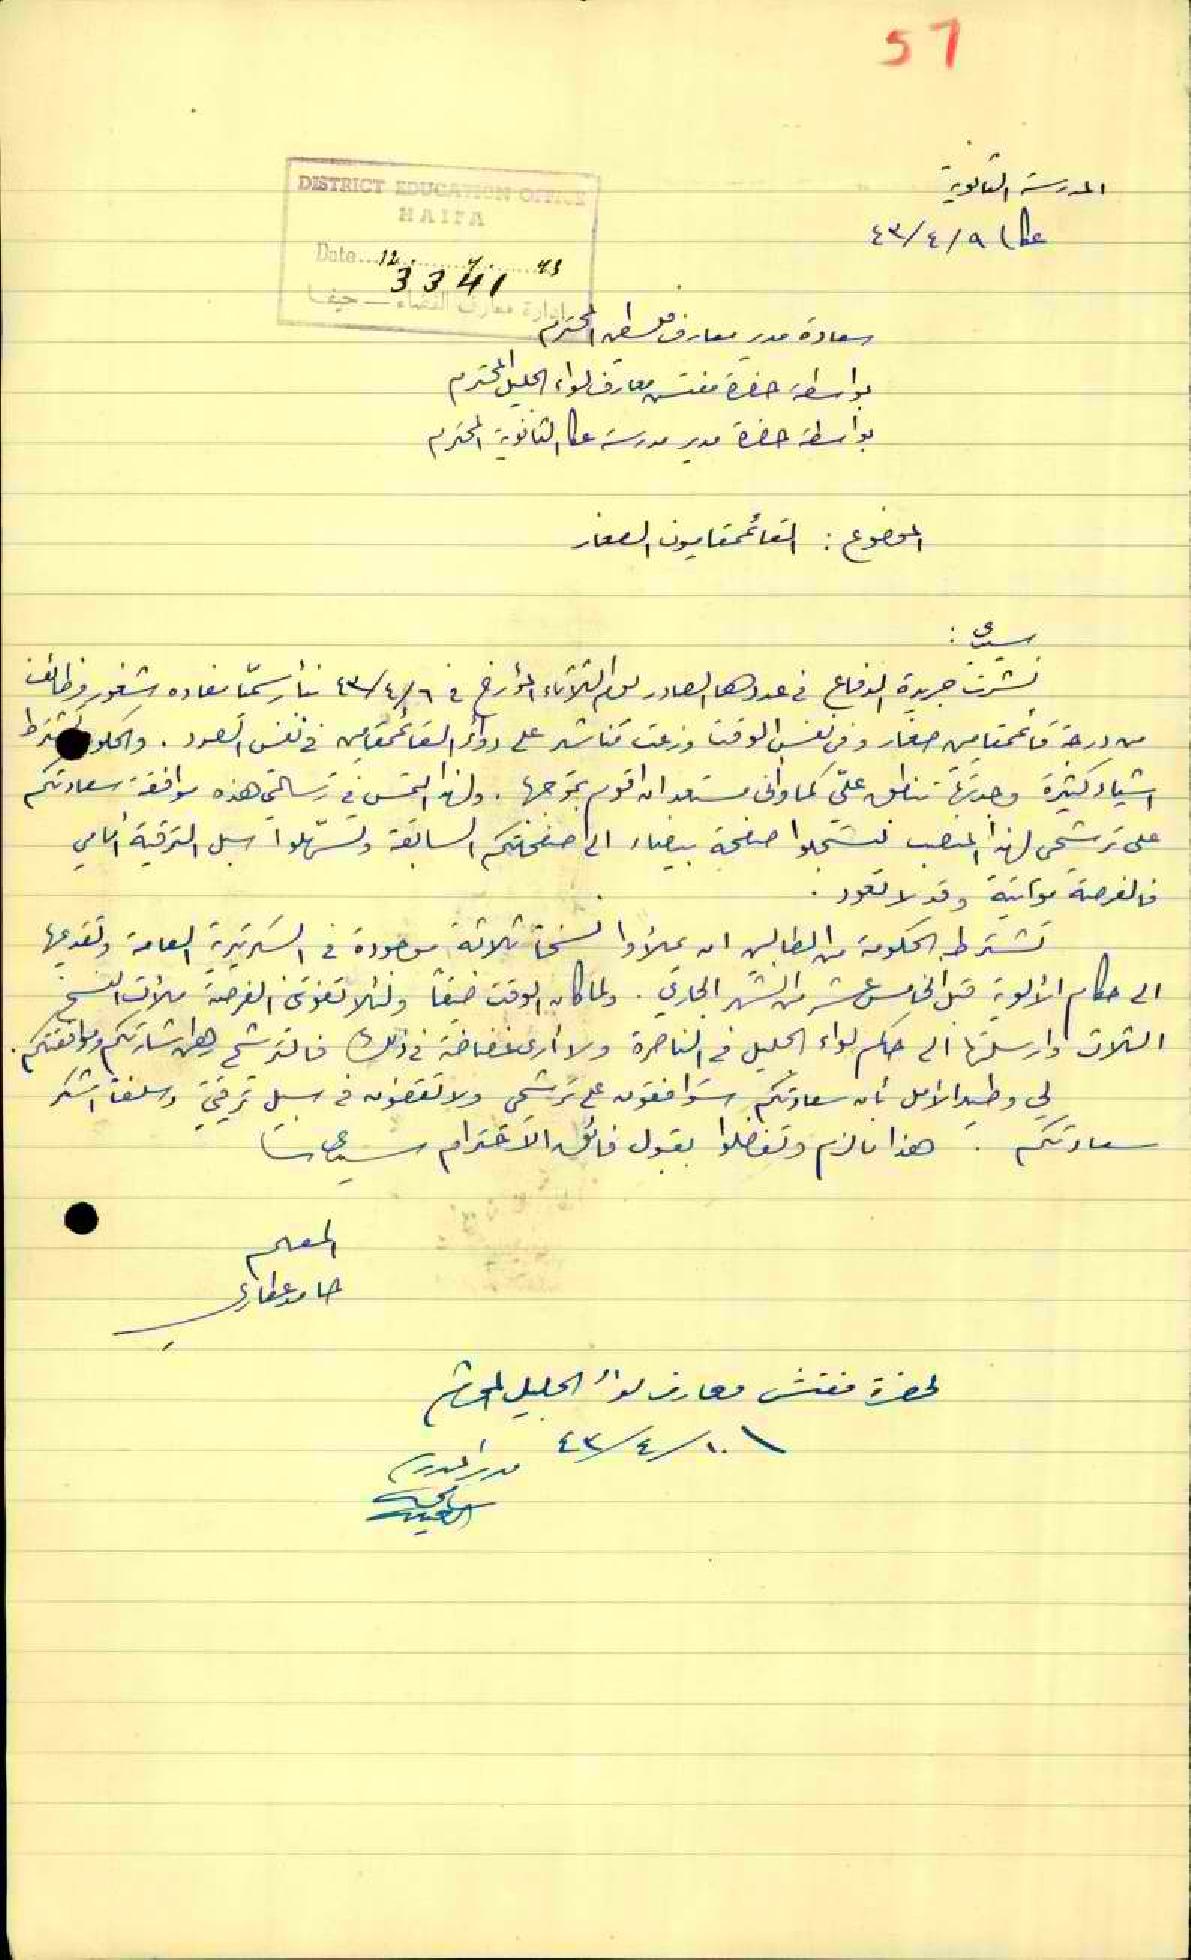 57
DISTRICT EDUCATION OFFICE
HAIFA
Date 12. 4. 43
3341
إدارة معارف القضاء — حيفا
المدرسة الثانوية
عكا ٤٣/٤/٩
سعادة مدير معارف فلسطين المحترم
بواسطة حضرة مفتش معارف لواء الجليل المحترم
بواسطة حضرة مدير مدرسة عكا الثانوية المحترم
الموضوع : القائمقامون الصغار
سيدي :
نشرت جريدة الدفاع في عددها الصادر يوم الثلاثاء المؤرخ في ٤٣/٤/٦ نبأ رسميّا مفاده شغور وظائف
من درجة قائمقامين صغار وفي نفس الوقت وزعت مناشير على دوائر القائمقامين في نفس الصدد . والحكومة تشترط
اشياء كثيرة وجدتها تنطبق عليّ كما واني مستعد ان اقوم بموجبها . ولهذا التمس في رسالتي هذه موافقة سعادتكم
على ترشيحي لهذا المنصب لتسجلوا صفحة بيضاء الى صفحاتكم السابقة وتسهّلوا سبل الترقية امامي
فالفرصة مواتية وقد لا تعود .
تشترط الحكومة من الطالبين ان يملأوا نسخاً ثلاثة موجودة في السكرتيرية العامة وتقديمها
الى حكام الألوية قبل الخامس عشر من الشهر الجاري . ولما كان الوقت ضيقاً ولئلا تفوتني الفرصة ملأت النسخ
الثلاث وارسلتها الى حاكم لواء الجليل في الناصرة ولا أرى غضاضة في ذلك فالترشيح رهن اشارتكم وموافقتكم .
لي وطيد الأمل بأن سعادتكم ستوافقون على ترشيحي ولا تقفون في سبيل ترقيتي وسلفاً اشكر
سعادتكم . هذا ما لزم وتفضلوا بقبول فائق الاحترام سيدي
المعلم
حامد عطاري
لحضرة مفتش معارف لواء الجليل المحترم
٤٣/٤/١٠
مدير المدرسة